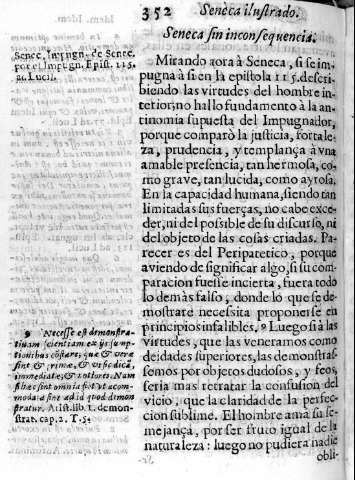 352 Seneca ilustrado.
Seneca sin inconsequencia.
Senec. Impugn. de Senec.
por el Impugn. Epist. 115.
ad Lucil.
Mirando aora à Seneca, si se im-
pugna à si en la epistola 115. descri-
biendo las virtudes del hombre in-
terior; no hallo fundamento à la an-
tinomia supuesta del Impugnador,
porque comparò la justicia, fortale-
za, prudencia, y templança à vna
amable presencia, tan hermosa, co-
mo grave, tan lucida, como ayrosa.
En la capacidad humana, siendo tan
limitadas sus fuerças, no cabe exce-
der, ni del possible de su discurso, ni
del objeto de las cosas criadas. Pa-
recer es del Peripatetico, porque
aviendo de significar algo, si su com-
paracion fuesse incierta, fuera todo
lo demàs falso, donde lo que se de-
mostrare necessita proponerse en
principios infalibles. 9 Luego si à las
virtudes, que las veneramos como
deidades superiores, las demostras-
semos por objetos dudosos, y feos,
seria mas retratar la confusion del
vicio, que la claridad de la perfec-
cion sublime. El hombre ama su se-
mejança, por ser fruto igual de la
naturaleza: luego no pudiera nadie
obli-
9 Necesse est demonstra-
tivam scientiam ex ijs sump-
tionibus constare, quæ & veræ
sint & primæ, &
immediatæ, & notiores. Nam
hæc sint omnia sunt ut acom-
moda sint ad id quod demon
stratur. Arist. lib. 1. demon-
strat. cap. 2. T. 5.